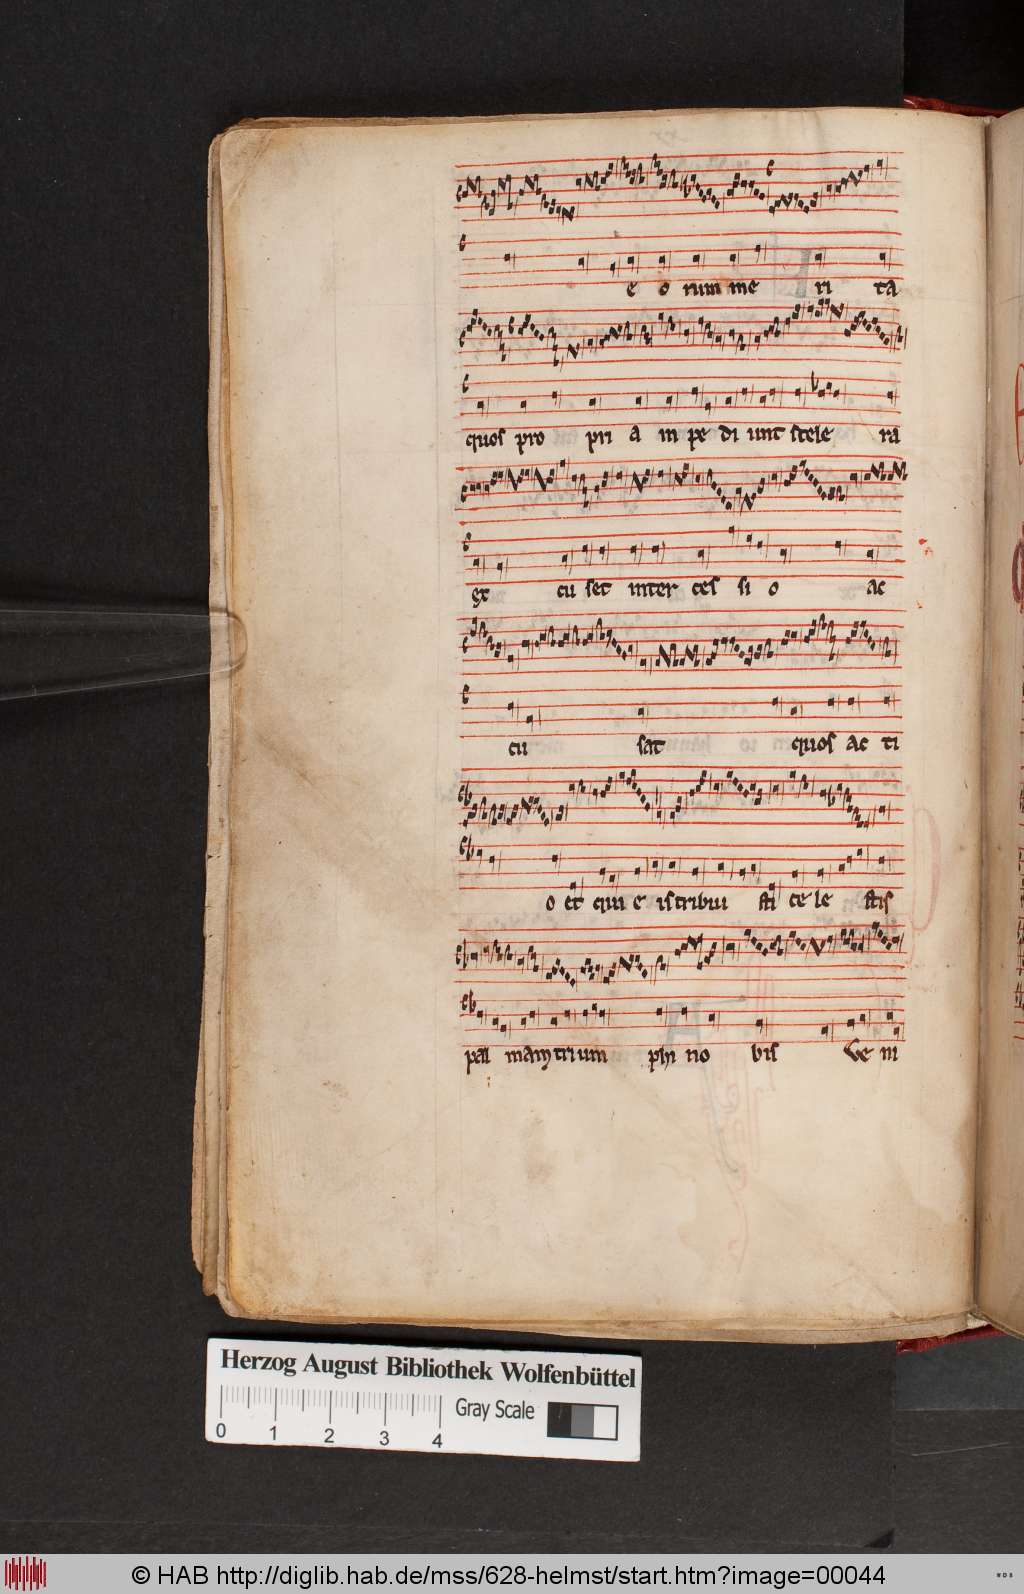 e o rum me ri ta
quos pro pri a in pe di unt scele ra
ex cu set inter ces si o ac
cu sat quos ac ti
o et qui e is tribui sti ce le stis
pal mam tri um phi no bis ve ni
Herzog August Bibliothek Wolfenbüttel
Gray Scale
0 1 2 3 4
© HAB http://diglib.hab.de/mss/628-helmst/start.htm?image=00044